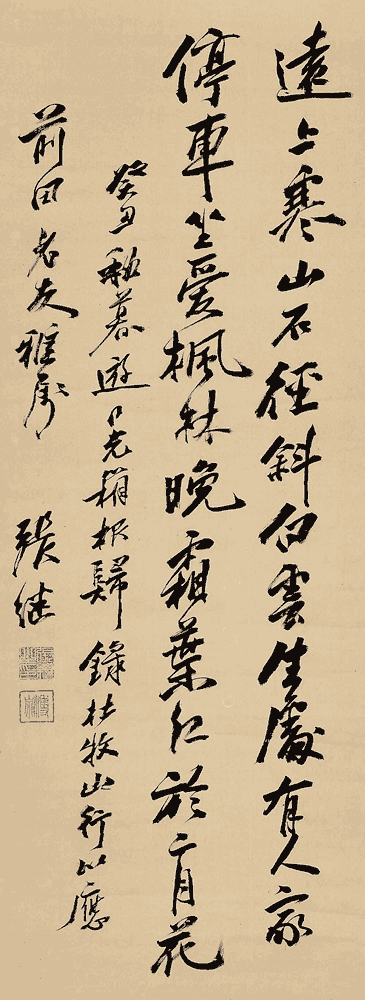 遠上寒山石徑斜白雲生處有人家
停車坐愛楓林晚霜葉紅於二月花
癸丑秋暮遊日光箱根歸錄杜牧山行以應
前田老友雅屬
張継